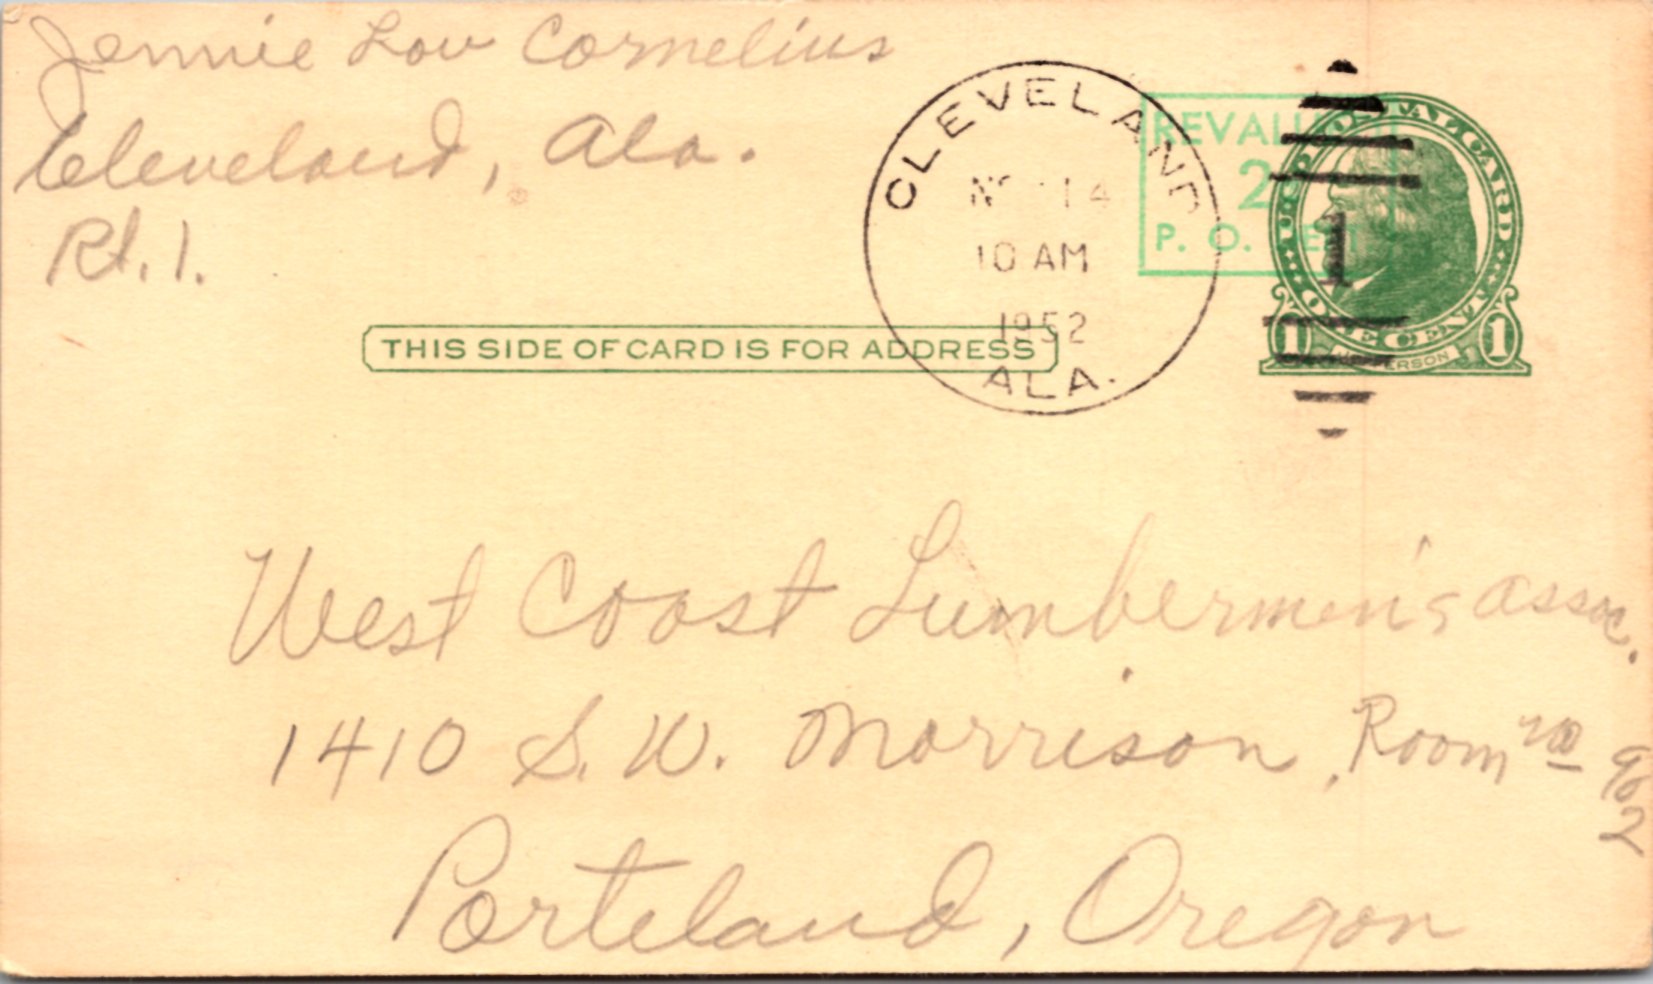 Jennie Lou Cornelius
Cleveland, Ala.
Rt. 1.
CLEVELAND
14
10 AM
1952
ALA.
REVALU
2
P. O.
U.S. POSTAL CARD
ONE CENT
1
1
1
JEFFERSON
THIS SIDE OF CARD IS FOR ADDRESS
West Coast Lumbermen's Assoc.
1410 S. W. Morrison, Room
Porteland, Oregon